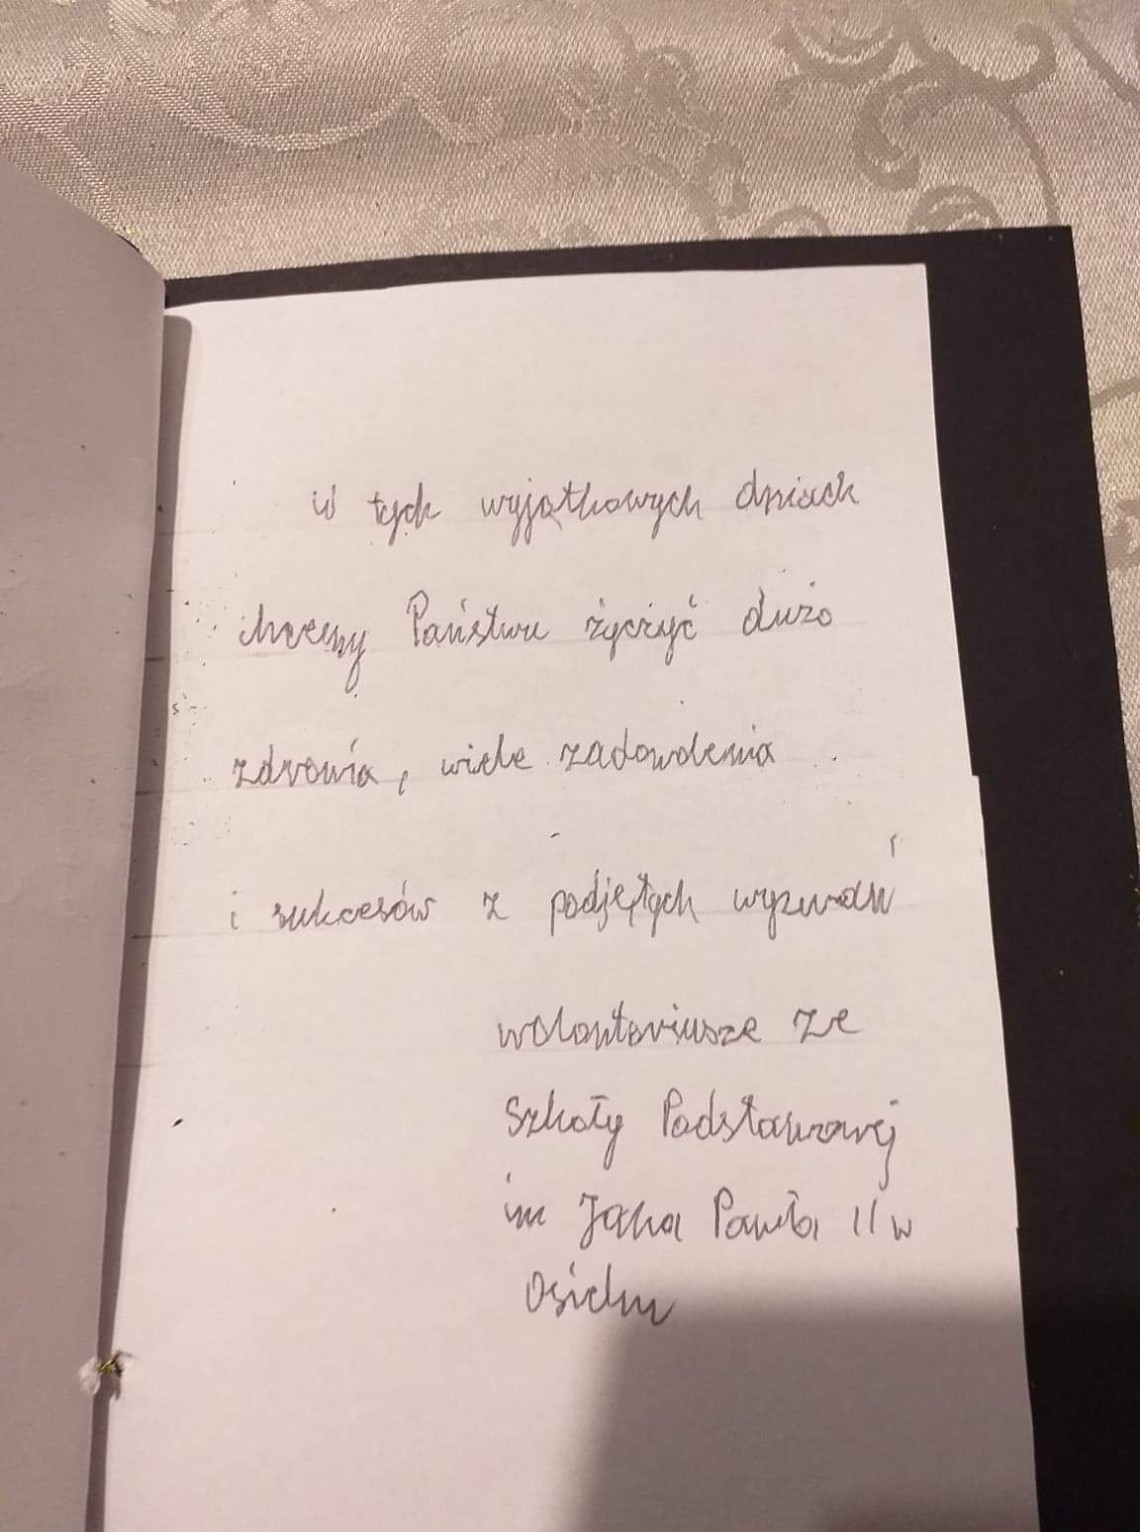 W tych wyjątkowych dniach
chcemy Państwu życzyć dużo
zdrowia, wiele zadowolenia
i sukcesów z podjętych wyzwań
wolontariusze ze
Szkoły Podstawowej
im Jana Pawła II w
Osieku